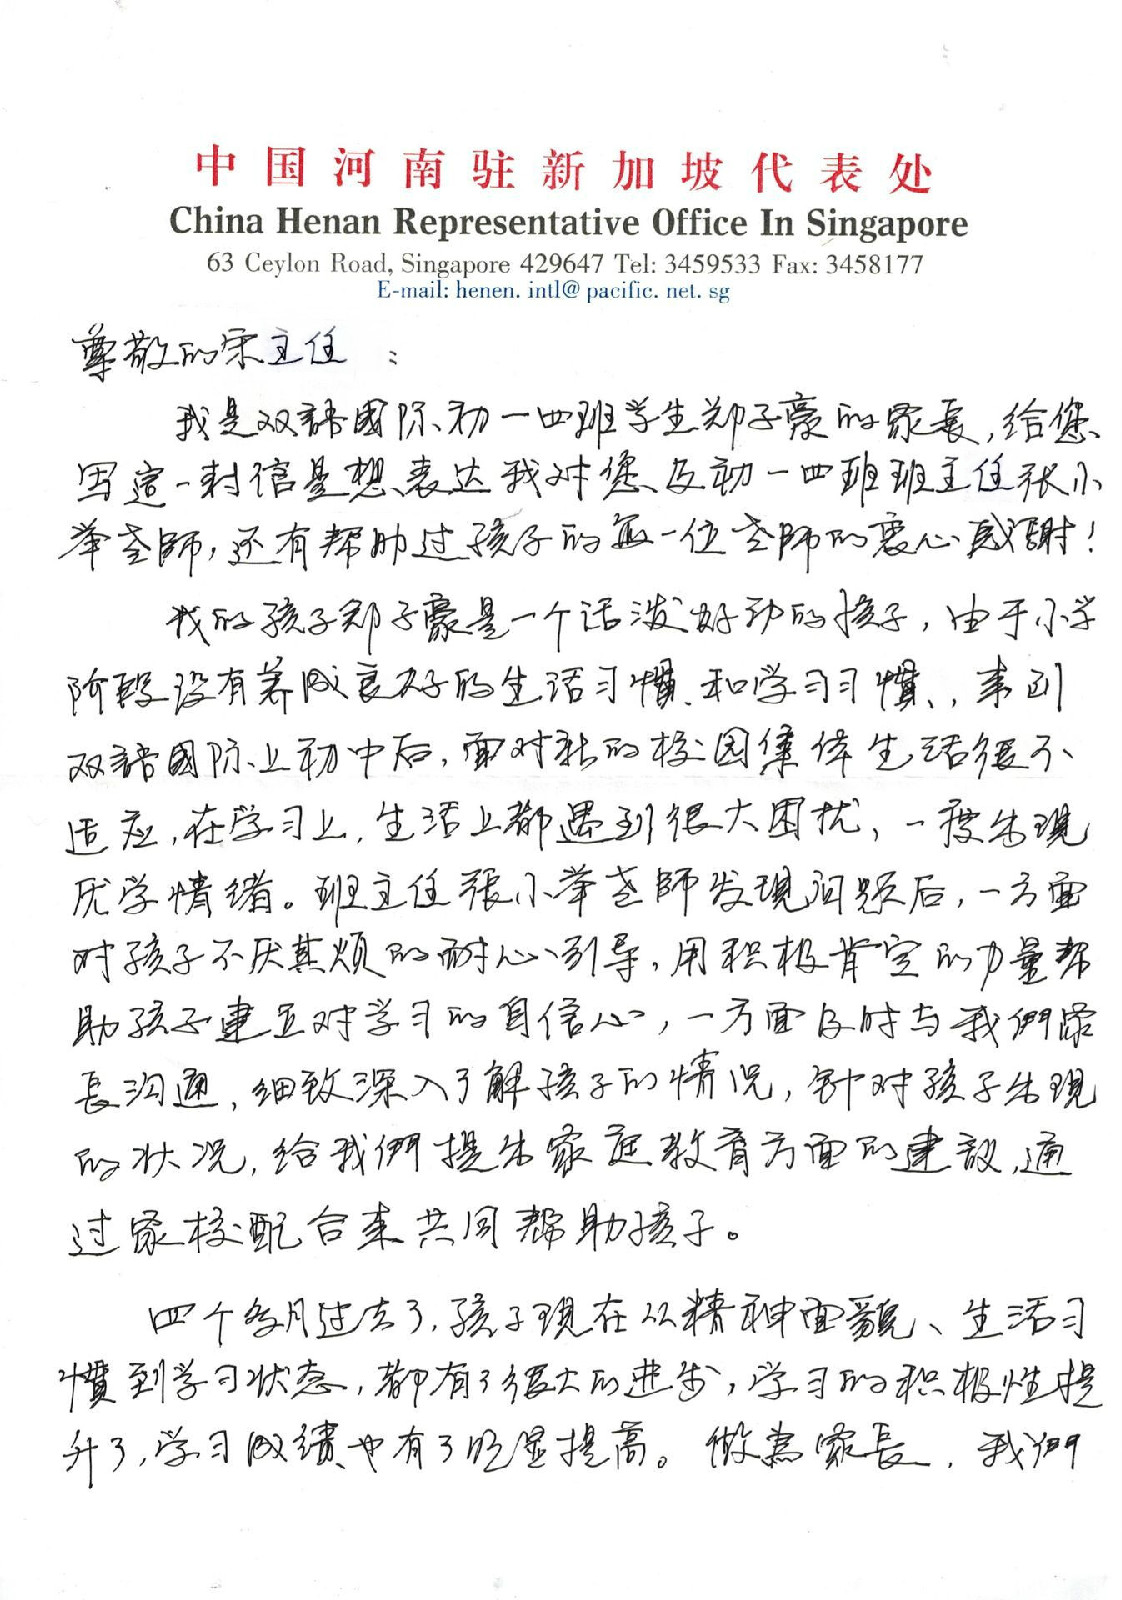 中国河南驻新加坡代表处
China Henan Representative Office In Singapore
63 Ceylon Road, Singapore 429647 Tel: 3459533 Fax: 3458177
E-mail: henen. intl@ pacific. net. sg
尊敬的宋主任：
我是双語國际初一四班学生郑子豪的家長，给您
写這一封信是想表达我对您及初一四班班主任張小
举老師，还有帮助过孩子的每一位老師的衷心感謝！
我的孩子郑子豪是一个活泼好动的孩子，由于小学
阶段没有养成良好的生活习慣和学习习慣，来到
双語國际上初中后，面对新的校园集体生活很不
适应，在学习上，生活上都遇到很大困扰，一度出現
厌学情绪。班主任張小举老師发現问题后，一方面
对孩子不厌其烦的耐心引导，用积极肯定的力量帮
助孩子建立对学习的自信心，一方面及时与我們家
長沟通，细致深入了解孩子的情况，针对孩子出現
的状况，给我們提出家庭教育方面的建议，通
过家校配合来共同帮助孩子。
四个多月过去了，孩子現在从精神面貌、生活习
慣到学习状态，都有了很大的进步，学习的积极性提
升了，学习成绩也有了明显提高。做為家長，我們